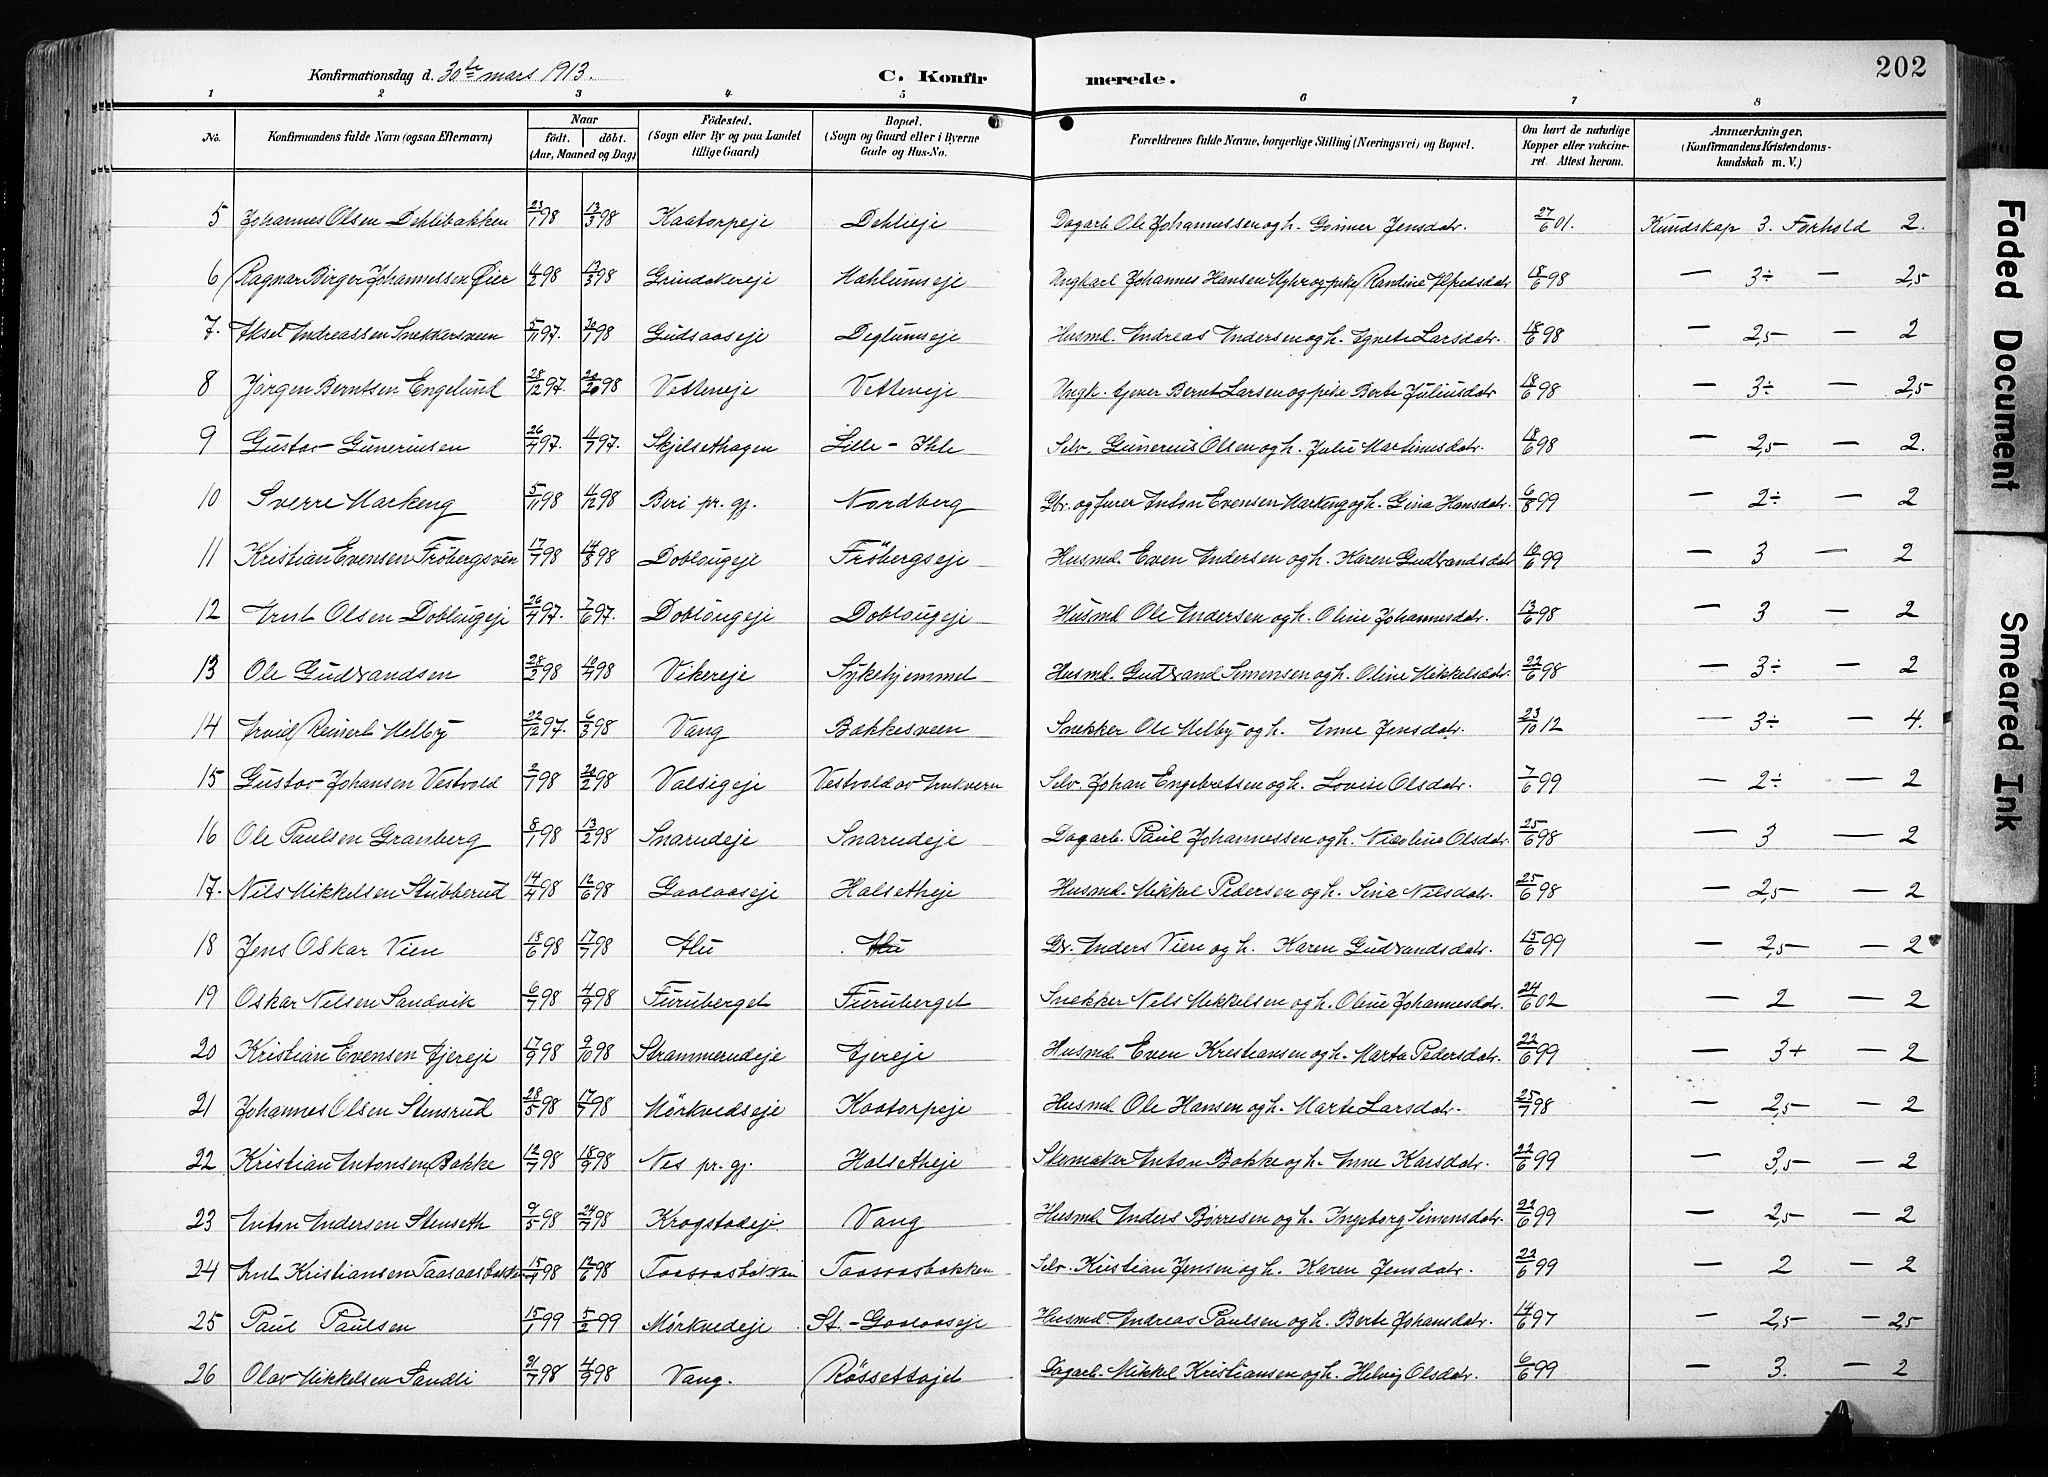 Konfirmationsdag d. 30te mars 1913. C. Konfirmerede. 202
1 2 3 4 5 6 7 8
No. Konfirmandens fulde Navn (ogsaa Efternavn) Naar født. døbt. (Aar, Maaned og Dag) Fødested. (Sogn eller By og paa Landet tillige Gaard) Bopæl. (Sogn og Gaard eller i Byerne Gade og Hus-No. Forældrenes fulde Navne, borgerlige Stilling (Næringsvei) og Bopæl. Om havt de naturlige Kopper eller vaccineret. Attest herom. Anmærkninger. (Konfirmandens Kristendomskundskab m. V.)
5 Johannes Olsen Dehlibakken 23/1 98 13/3 98 Kaatorpeje Dehlieje Dagarb. Ole Johannessen og h. Gunner Jensdatr. 27/6 01. Kundskap 3. Forhold 2.
6 Ragnar Birger Johannessen Øier 4/2 98 13/3 98 Grindakereje Mahlumseje Ungkarl Johannes Hansen Myhr og pike Randine Alfredsdatr 18/6 98 — 3÷ — 2,5
7. Aksel Andreassen Snekkersveen 5/11 97. 30/1 98 Gudsaaseje Deglumseje Husmd. Andreas Andersen og h. Agnete Larsdatr. 18/6 98 — 2,5 — 2
8 Jørgen Berntsen Engelund 28/12 97. 98 Vetteneje Vetteneje Ungk. Bernt Larsen og pike Berte Juliusdatr 18/6 98 — 3÷ — 2,5
9 Gustav Guneriusen 26/4 97. 4/7 97. Skjelsethagen Lille-Ihle Selv. Gunerius Olsen og h. Julie Martinusdatr. 18/6 98 — 2,5 — 2.
10 Sverre Markeng 5/11 98 4/12 98 Biri pr. gj. Nordberg Gbr. og furer Anton Evensen Markeng og h. Gina Hansdatr. 6/8 99 — 2÷ — 2
11 Kristian Evensen Frøbergsven 17/7 98 14/8 98 Doblougeje Frøbergseje Husmd. Even Andersen og h. Karen Gudbrandsdatr 16/6 99 — 3 — 2
12 Arnt Olsen Doblougeje 26/4 97. 7/6 97. Doblougeje Doblougeje Husmd Ole Andersen og h. Oline Johannesdatr. 13/6 98 — 3 — 2
13 Ole Gudbrandsen 28/2 98 10/4 98 Vikereje Sykehjemmet Husmd. Gudbrand Simensen og h. Oline Mikkelsdatr. 22/6 98 — 3÷ — 2
14 Arvid Reinert Melby 22/12 97. 6/3 98 Vang Bakkesveen Snekker Ole Melby og h. Anne Jensdatr. 23/10 12 — 3÷ — 4.
15 Gustav Johansen Vestvold 2/1 98 20/2 98 Valsigeje Vestvold av Ankvern Selv. Johan Engebretsen og h. Lovise Olsdatr. 7/6 99 — 2÷ — 2
16 Ole Paulsen Granberg 8/1 98 13/2 98 Snarudeje Snarudeje Dagarb. Paul Johannessen og h. Nicoline Olsdatr. 25/6 98 — 3 — 2
17. Nils Mikkelsen Stubberud 14/4 98 12/6 98 Gaalaaseje Halsetheje Husmd. Mikkel Pedersen og h. Sina Nilsdatr. 25/6 98 — 2,5 — 2
18 Jens Oskar Vien 18/6 98 17/7 98 Alu Alu Gbr. Anders Vien og h. Karen Gudbrandsdatr. 15/6 99 — 2,5 — 2
19 Oskar Nilsen Sandvik 6/7 98 4/9 98 Furuberget Furuberget Snekker Nils Mikkelsen og h. Oline Johannesdatr. 24/6 02 — 2 — 2
20 Kristian Evensen Ajereje 17/9 98 9/10 98 Strammerudeje Ajereje Husmd. Even Kristiansen og h. Marta Pedersdatr. 22/6 99 — 3+ — 2
21 Johannes Olsen Stensrud 28/5 98 17/7 98 Mørkvedseje Kaatorpeje Husmd Ole Hansen og h. Marte Larsdatr. 25/7 98 — 2,5 — 2
22 Kristian Antonsen Bakke 12/7 98 18/9 98 Nes pr. gj. Halsetheje Skomaker Anton Bakke og h. Anne Larsdatr. 22/6 99 — 3,5 — 2
23 Anton Andersen Stenseth 9/5 98 24/7 98 Krogstadeje Vang Husmd Anders Børresen og h. Ingeborg Simensdatr. 22/6 99 — 2,5 — 2
24 Arnt Kristiansen Taasaasbakken 15/4 98 12/6 98 Taasaasbakken Taasaasbakken Selv. Kristian Jensen og h. Karen Jensdatr. 22/6 99 — 2 — 2
25 Paul Paulsen 15/1 99 5/2 99 Mørkvedeje St.-Gaalaaseje Husmd Andreas Paulsen og h. Berte Johansdatr. 14/6 97 — 2,5 — 2,5
26 Olav Mikkelsen Sandli 31/7 98 4/9 98 Vang. Røssettajet Dagarb. Mikkel Kristiansen og h. Helvig Olsdatr. 6/6 99 — 3. — 2
Faded Document
Smeared Ink